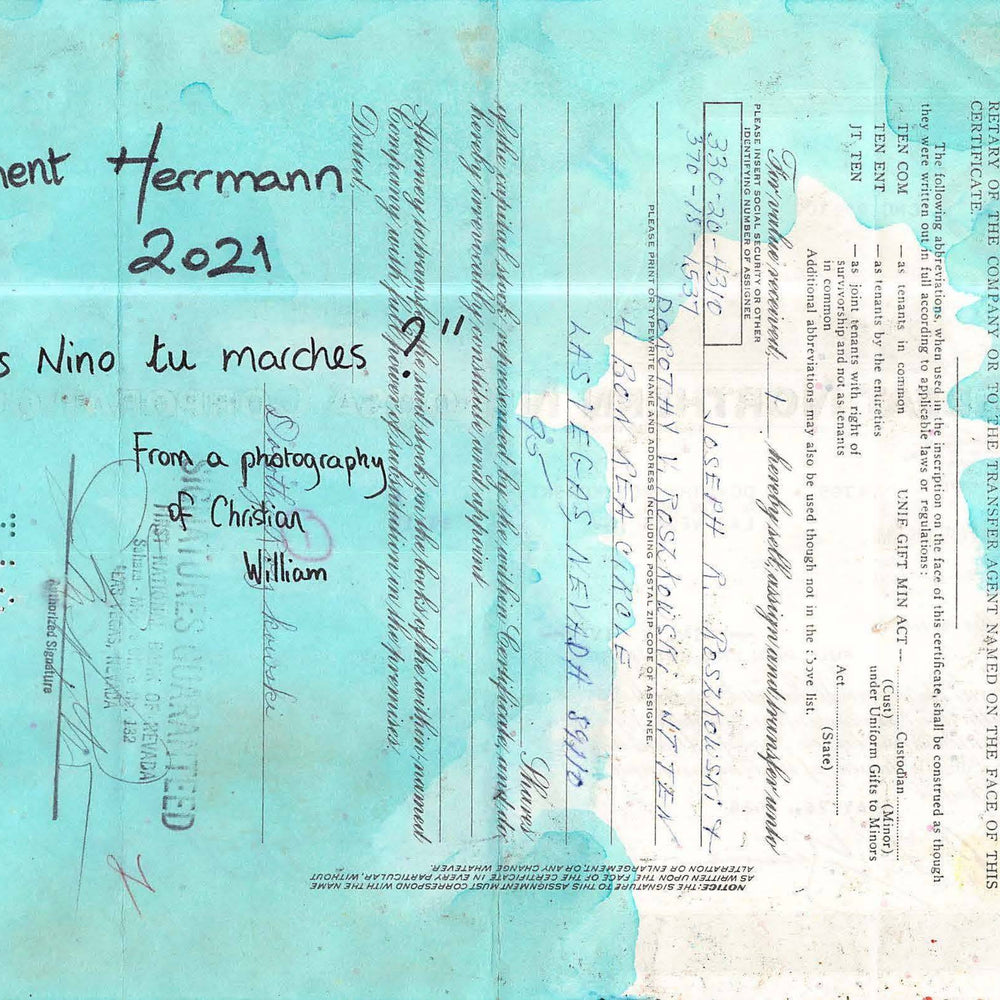 Herrmann
2021
Nino tu marches ?"
From a photography
of Christian
William
RETARY OF THE COMPANY OR TO THE TRANSFER AGENT NAMED ON THE FACE OF THIS
CERTIFICATE.
The following abbreviations, when used in the inscription on the face of this certificate, shall be construed as though
they were written out in full according to applicable laws or regulations:
TEN COM — as tenants in common
TEN ENT — as tenants by the entireties
JT TEN — as joint tenants with right of
survivorship and not as tenants
in common
UNIF GIFT MIN ACT — Custodian
(Cust) (Minor)
under Uniform Gifts to Minors
Act
(State)
Additional abbreviations may also be used though not in the above list.
For value received, I hereby sell, assign and transfer unto
PLEASE INSERT SOCIAL SECURITY OR OTHER
IDENTIFYING NUMBER OF ASSIGNEE
330-20-4310
370-18-1537
JOSEPH R. ROSZKOWSKI &
DOROTHY V. ROSZKOWSKI JT TEN
PLEASE PRINT OR TYPEWRITE NAME AND ADDRESS INCLUDING POSTAL ZIP CODE OF ASSIGNEE.
LAS VEGAS, NEVADA 89110
95 Shares
of the capital stock represented by the within Certificate, and do
hereby irrevocably constitute and appoint
Attorney to transfer the said stock on the books of the within-named
Company with full power of substitution in the premises.
Dated,
SIGNATURES GUARANTEED
FIRST NATIONAL BANK OF NEVADA
LAS VEGAS, NEVADA
Authorized Signature
NOTICE: THE SIGNATURE TO THIS ASSIGNMENT MUST CORRESPOND WITH THE NAME
AS WRITTEN UPON THE FACE OF THE CERTIFICATE IN EVERY PARTICULAR, WITHOUT
ALTERATION OR ENLARGEMENT, OR ANY CHANGE WHATEVER.